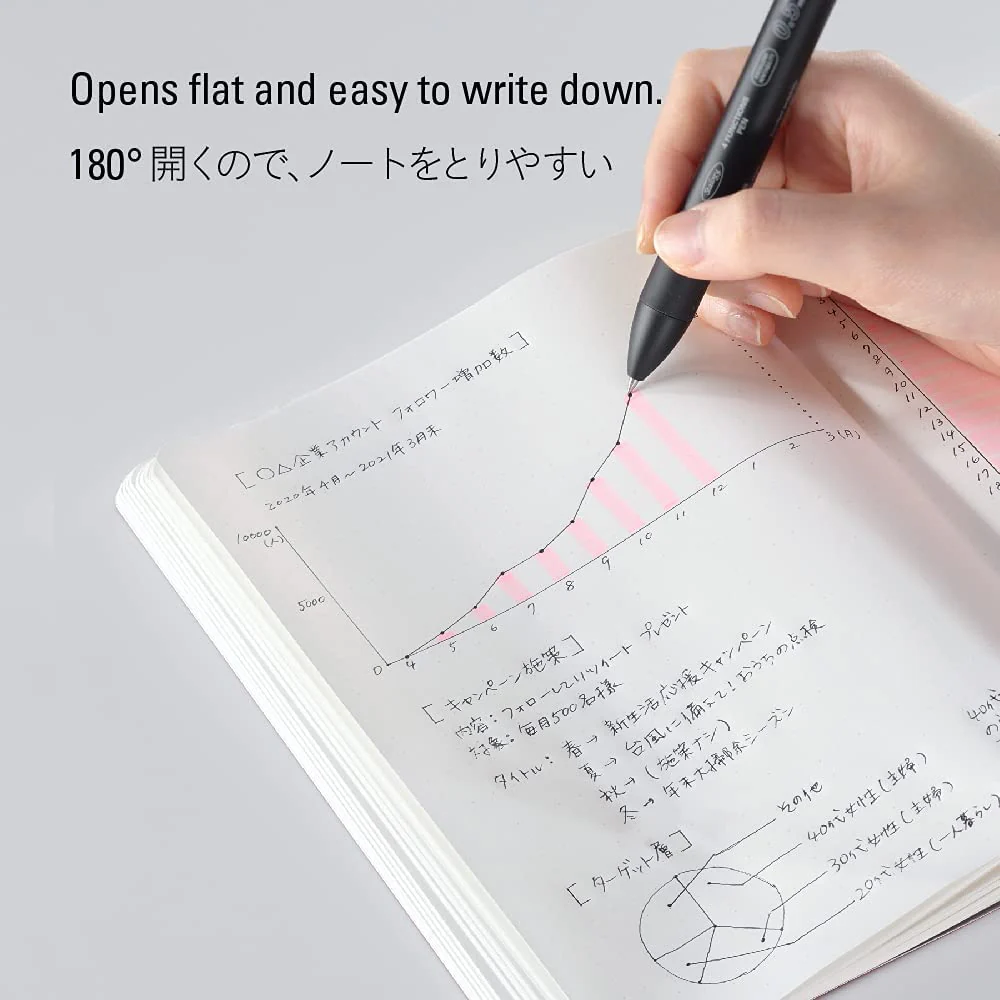 Opens flat and easy to write down.
180° 開くので、ノートをとりやすい
0.5
4 FUNCTIONS
PEN
[○△企業アカウント フォロワー増加数]
2020年4月～2021年3月末
10000
(人)
5000
0
4 5 6 7 8 9 10 11 12 1 2 3(月)
[キャンペーン施策]
内容：フォローしてリツイート プレゼント
対象：毎月500名様
タイトル： 春→ 新生活応援キャンペーン
夏→ 台風に備えて！おうちの点検
秋→ (施策ナシ)
冬→ 年末大掃除シーズン
[ターゲット層]
その他
40代女性(主婦)
30代女性(主婦)
20代女性(一人暮らし)
4
5
6
7
8
9
10
11
12
13
14
15
16
17
18
40代
の